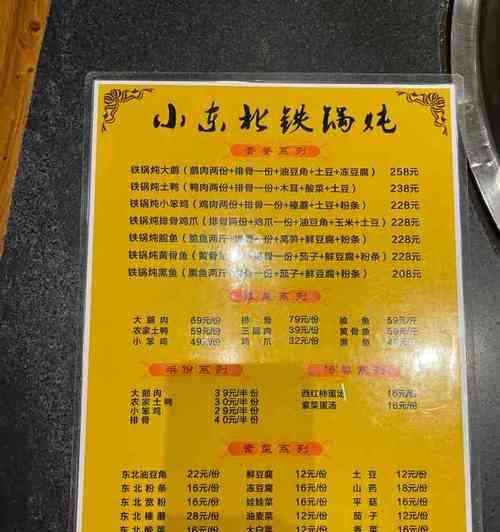 小东北铁锅炖
套餐系列
铁锅炖大鹅（鹅肉两份+排骨一份+油豆角+土豆+冻豆腐）258元
铁锅炖土鸭（鸭肉两份+排骨一份+木耳+酸菜+土豆）238元
铁锅炖小笨鸡（鸡肉两份+排骨一份+榛蘑+土豆+粉条）228元
铁锅炖排骨鸡爪（排骨两份+鸡爪一份+油豆角+玉米+土豆）228元
铁锅炖鮰鱼（鮰鱼两斤+排骨一份+莴笋+鲜豆腐+粉条）228元
铁锅炖黄骨鱼（黄骨鱼 一份+茄子+鲜豆腐+粉条）228元
铁锅炖黑鱼（黑鱼两斤+排骨一份+茄子+鲜豆腐+粉条）208元
系列
大鹅肉 69元/份 排骨 79元/份 鮰鱼 59元/斤
农家土鸭 59元/份 三腊肉 39元/份 黄骨鱼 59元/斤
小笨鸡 49元/份 鸡爪 32元/份 黑鱼 45元/斤
半份系列 汤类系列
大鹅肉 39元/半份 西红柿蛋汤 16元/份
农家土鸭 30元/半份 紫菜蛋汤 16元/份
小笨鸡 29元/半份
排骨 40元/半份
素菜系列
东北油豆角 22元/份 鲜豆腐 12元/份 土豆 12元/份
东北粉条 16元/份 冻豆腐 16元/份 山药 18元/份
东北宽粉 16元/份 娃娃菜 16元/份 平菇 16元/份
东北榛蘑 28元/份 油麦菜 12元/份 茄子 12元/份
东北酸菜 16元/份 大白菜 12元/份 香菜 16元/份